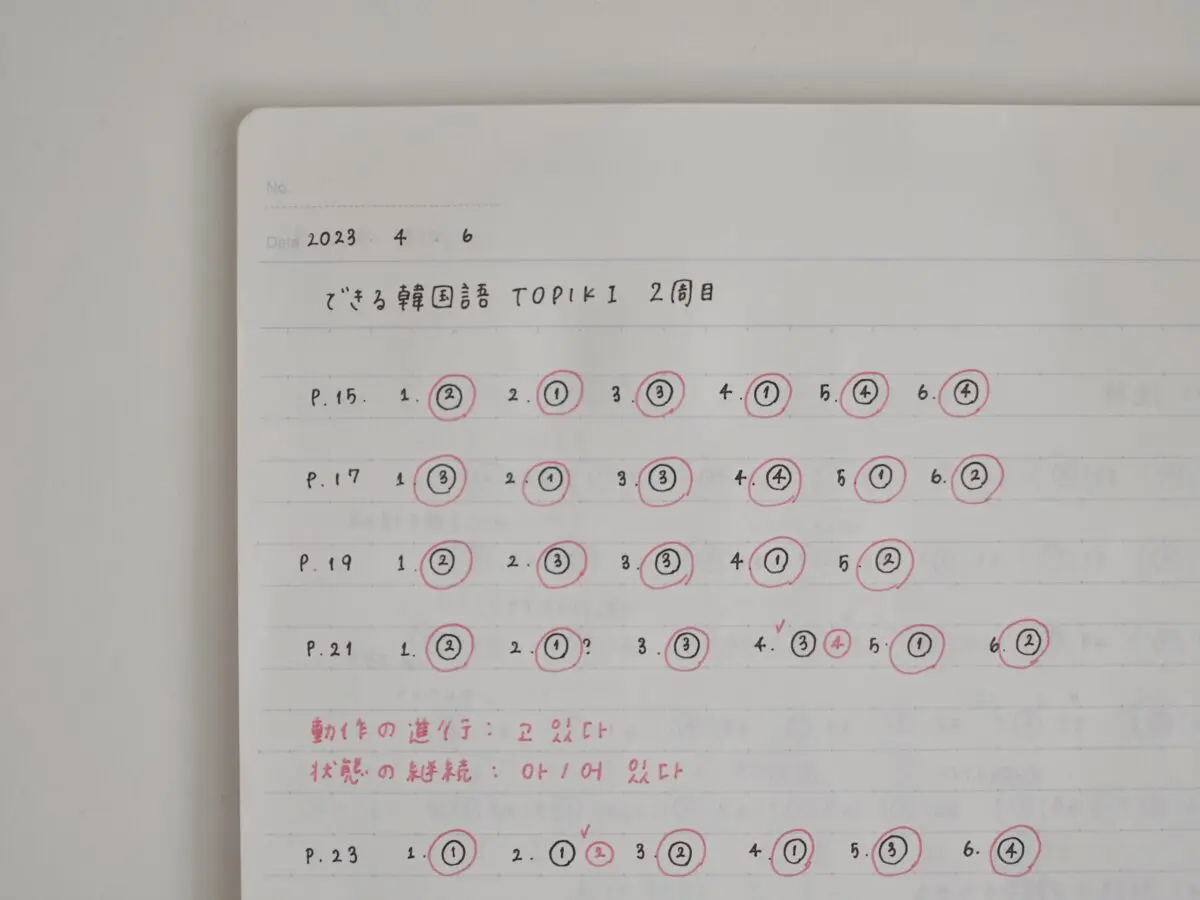 No.
Date 2023 . 4 . 6
できる韓国語 TOPIK I 2周目
P.15. 1. ② 2. ① 3. ③ 4. ① 5. ④ 6. ④
P.17 1. ③ 2. ① 3. ③ 4. ④ 5. ① 6. ②
P.19 1. ② 2. ③ 3. ③ 4. ① 5. ②
P.21 1. ② 2. ①? 3. ③ 4. ③ ④ 5. ① 6. ②
動作の進行: 고 있다
状態の継続: 아/어 있다
P.23 1. ① 2. ① ② 3. ② 4. ① 5. ③ 6. ④